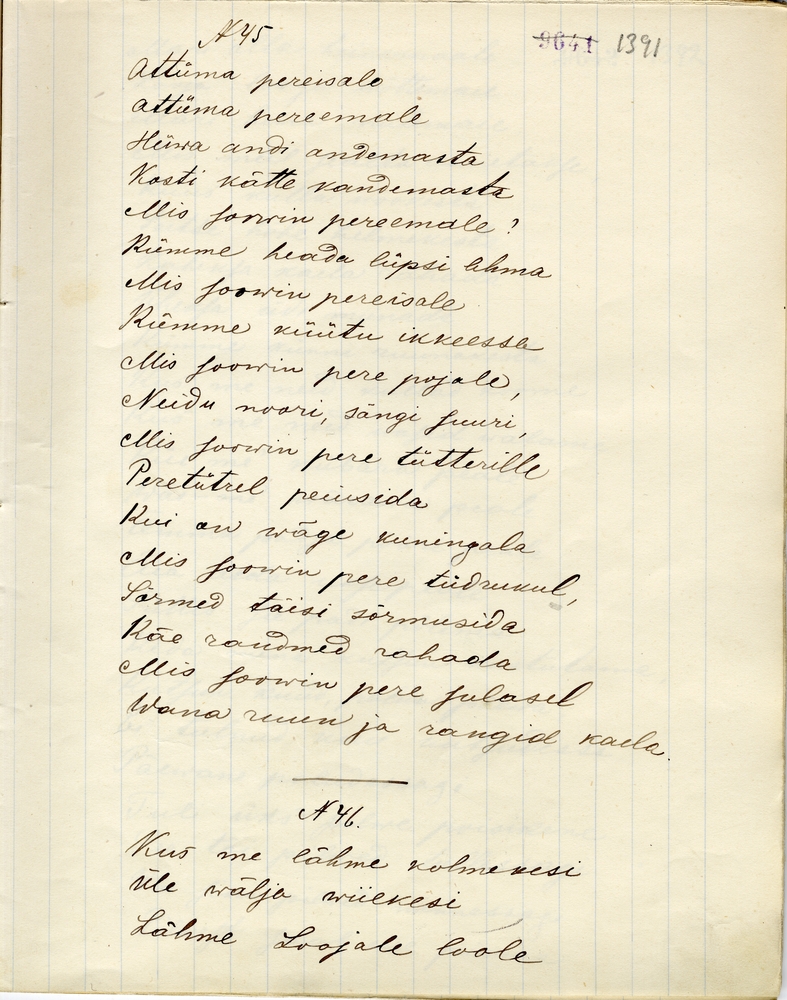 N 45
9641 1391
Attüma pereisale
Attüma pereemale
Hüwa andi andemasta
Kosti kätte kandemasta
Mis soowin pereemale?
Kümme heada lüpsi lehma
Mis soowin pereisale
Kümme küütu ikkeessa
Mis soowin pere pojale,
Neidu noori, sängi suuri,
Mis soowin pere tütterille
Peretütrel peiusida
Kui on wäge kuningala
Mis soowin pere tüdrukul,
Sõrmed täisi sõrmusida
Käe randmed rahada
Mis soowin pere sulasel
Wana ruun ja rangid kaela.
N 46.
Kus me lähme kolmekesi
üle wälja wiiekesi
Lähme Loojale loole